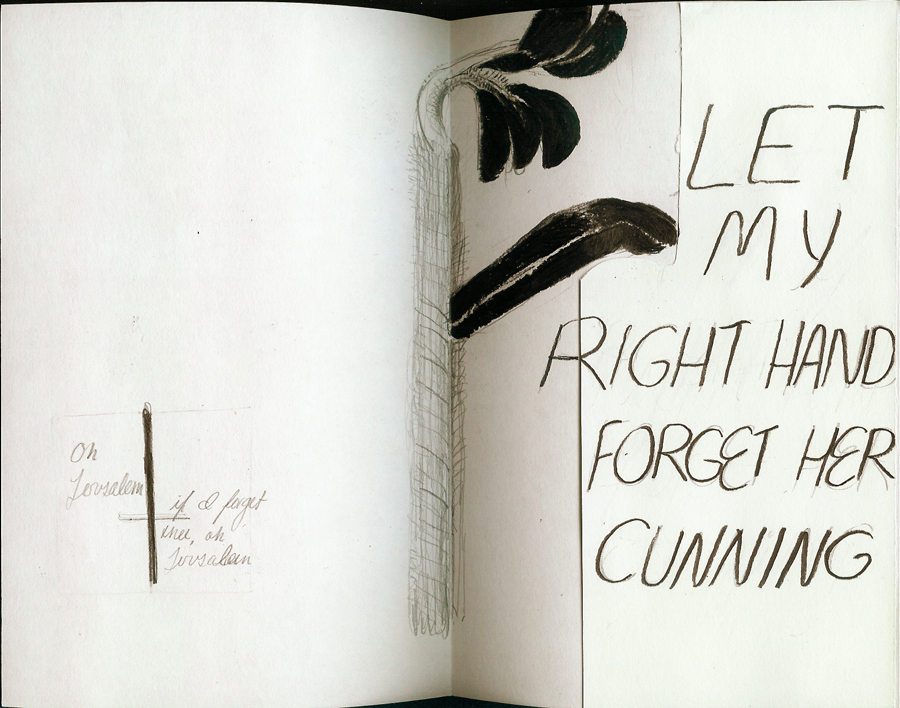 Oh
Jerusalem
if I forget
thee, oh
Jerusalem
LET
MY
RIGHT HAND
FORGET HER
CUNNING